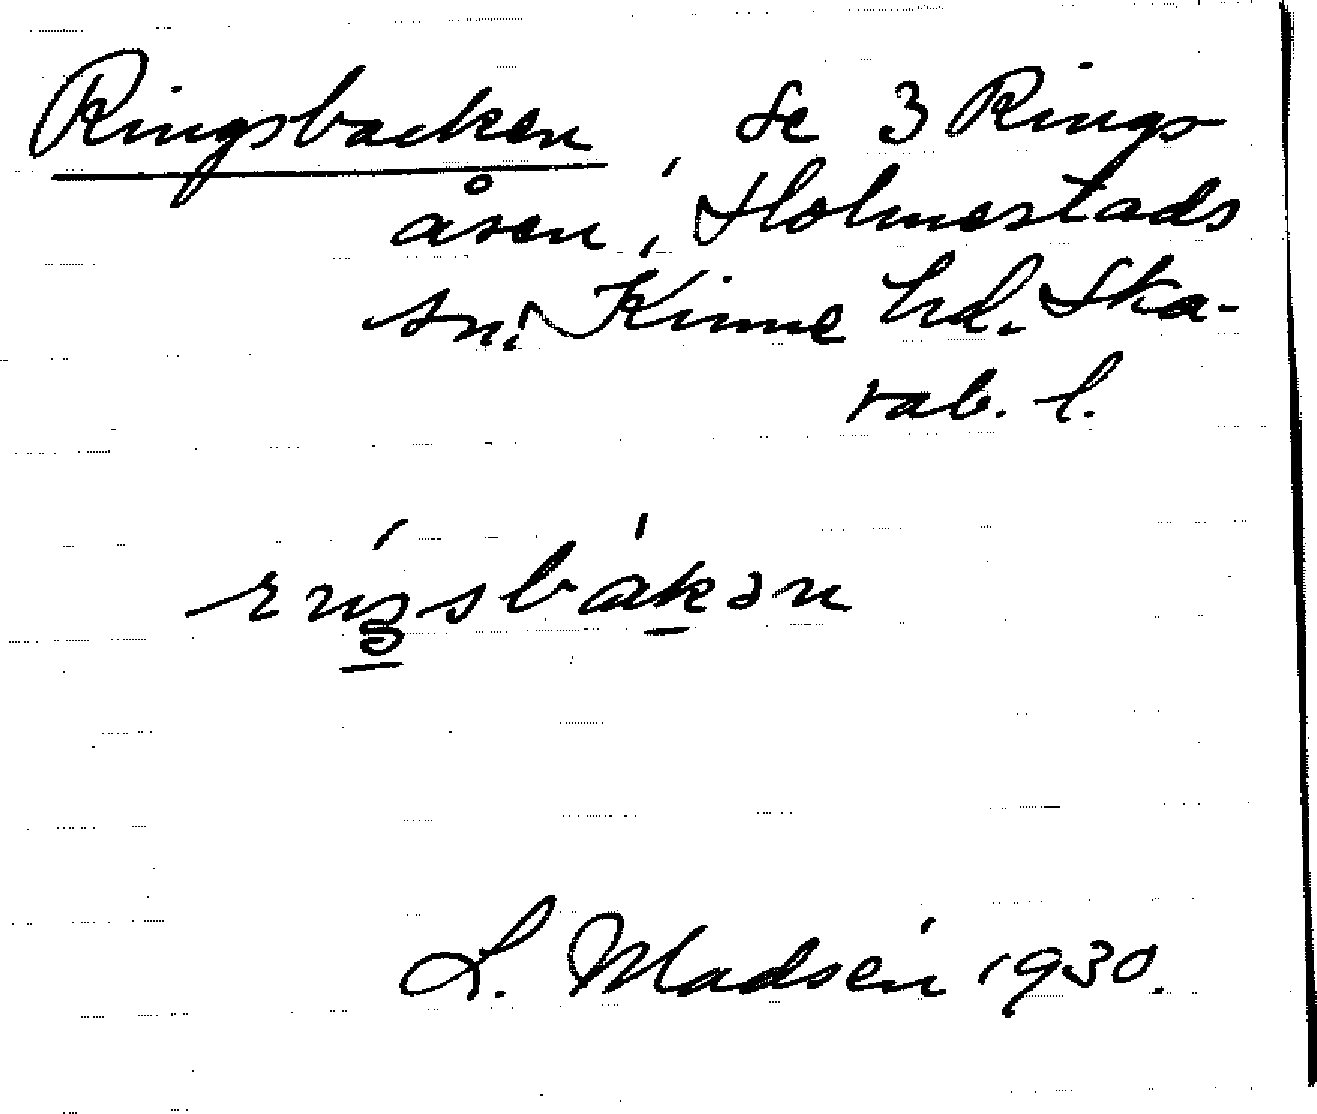 Ringsbacken, se 3 Rings
åsen, Holmestads
sn, Kinne hd. Ska-
rab. l.
L. Madsén 1930.